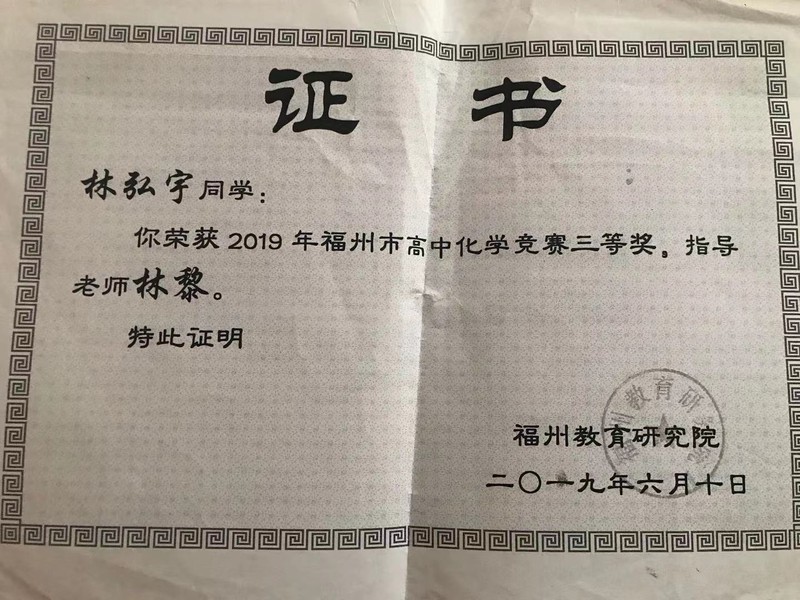 证 书
林弘宇同学：
你荣获 2019 年福州市高中化学竞赛三等奖。指导
老师林黎。
特此证明
福州教育研究院
二〇一九年六月十日
福州教育研究院